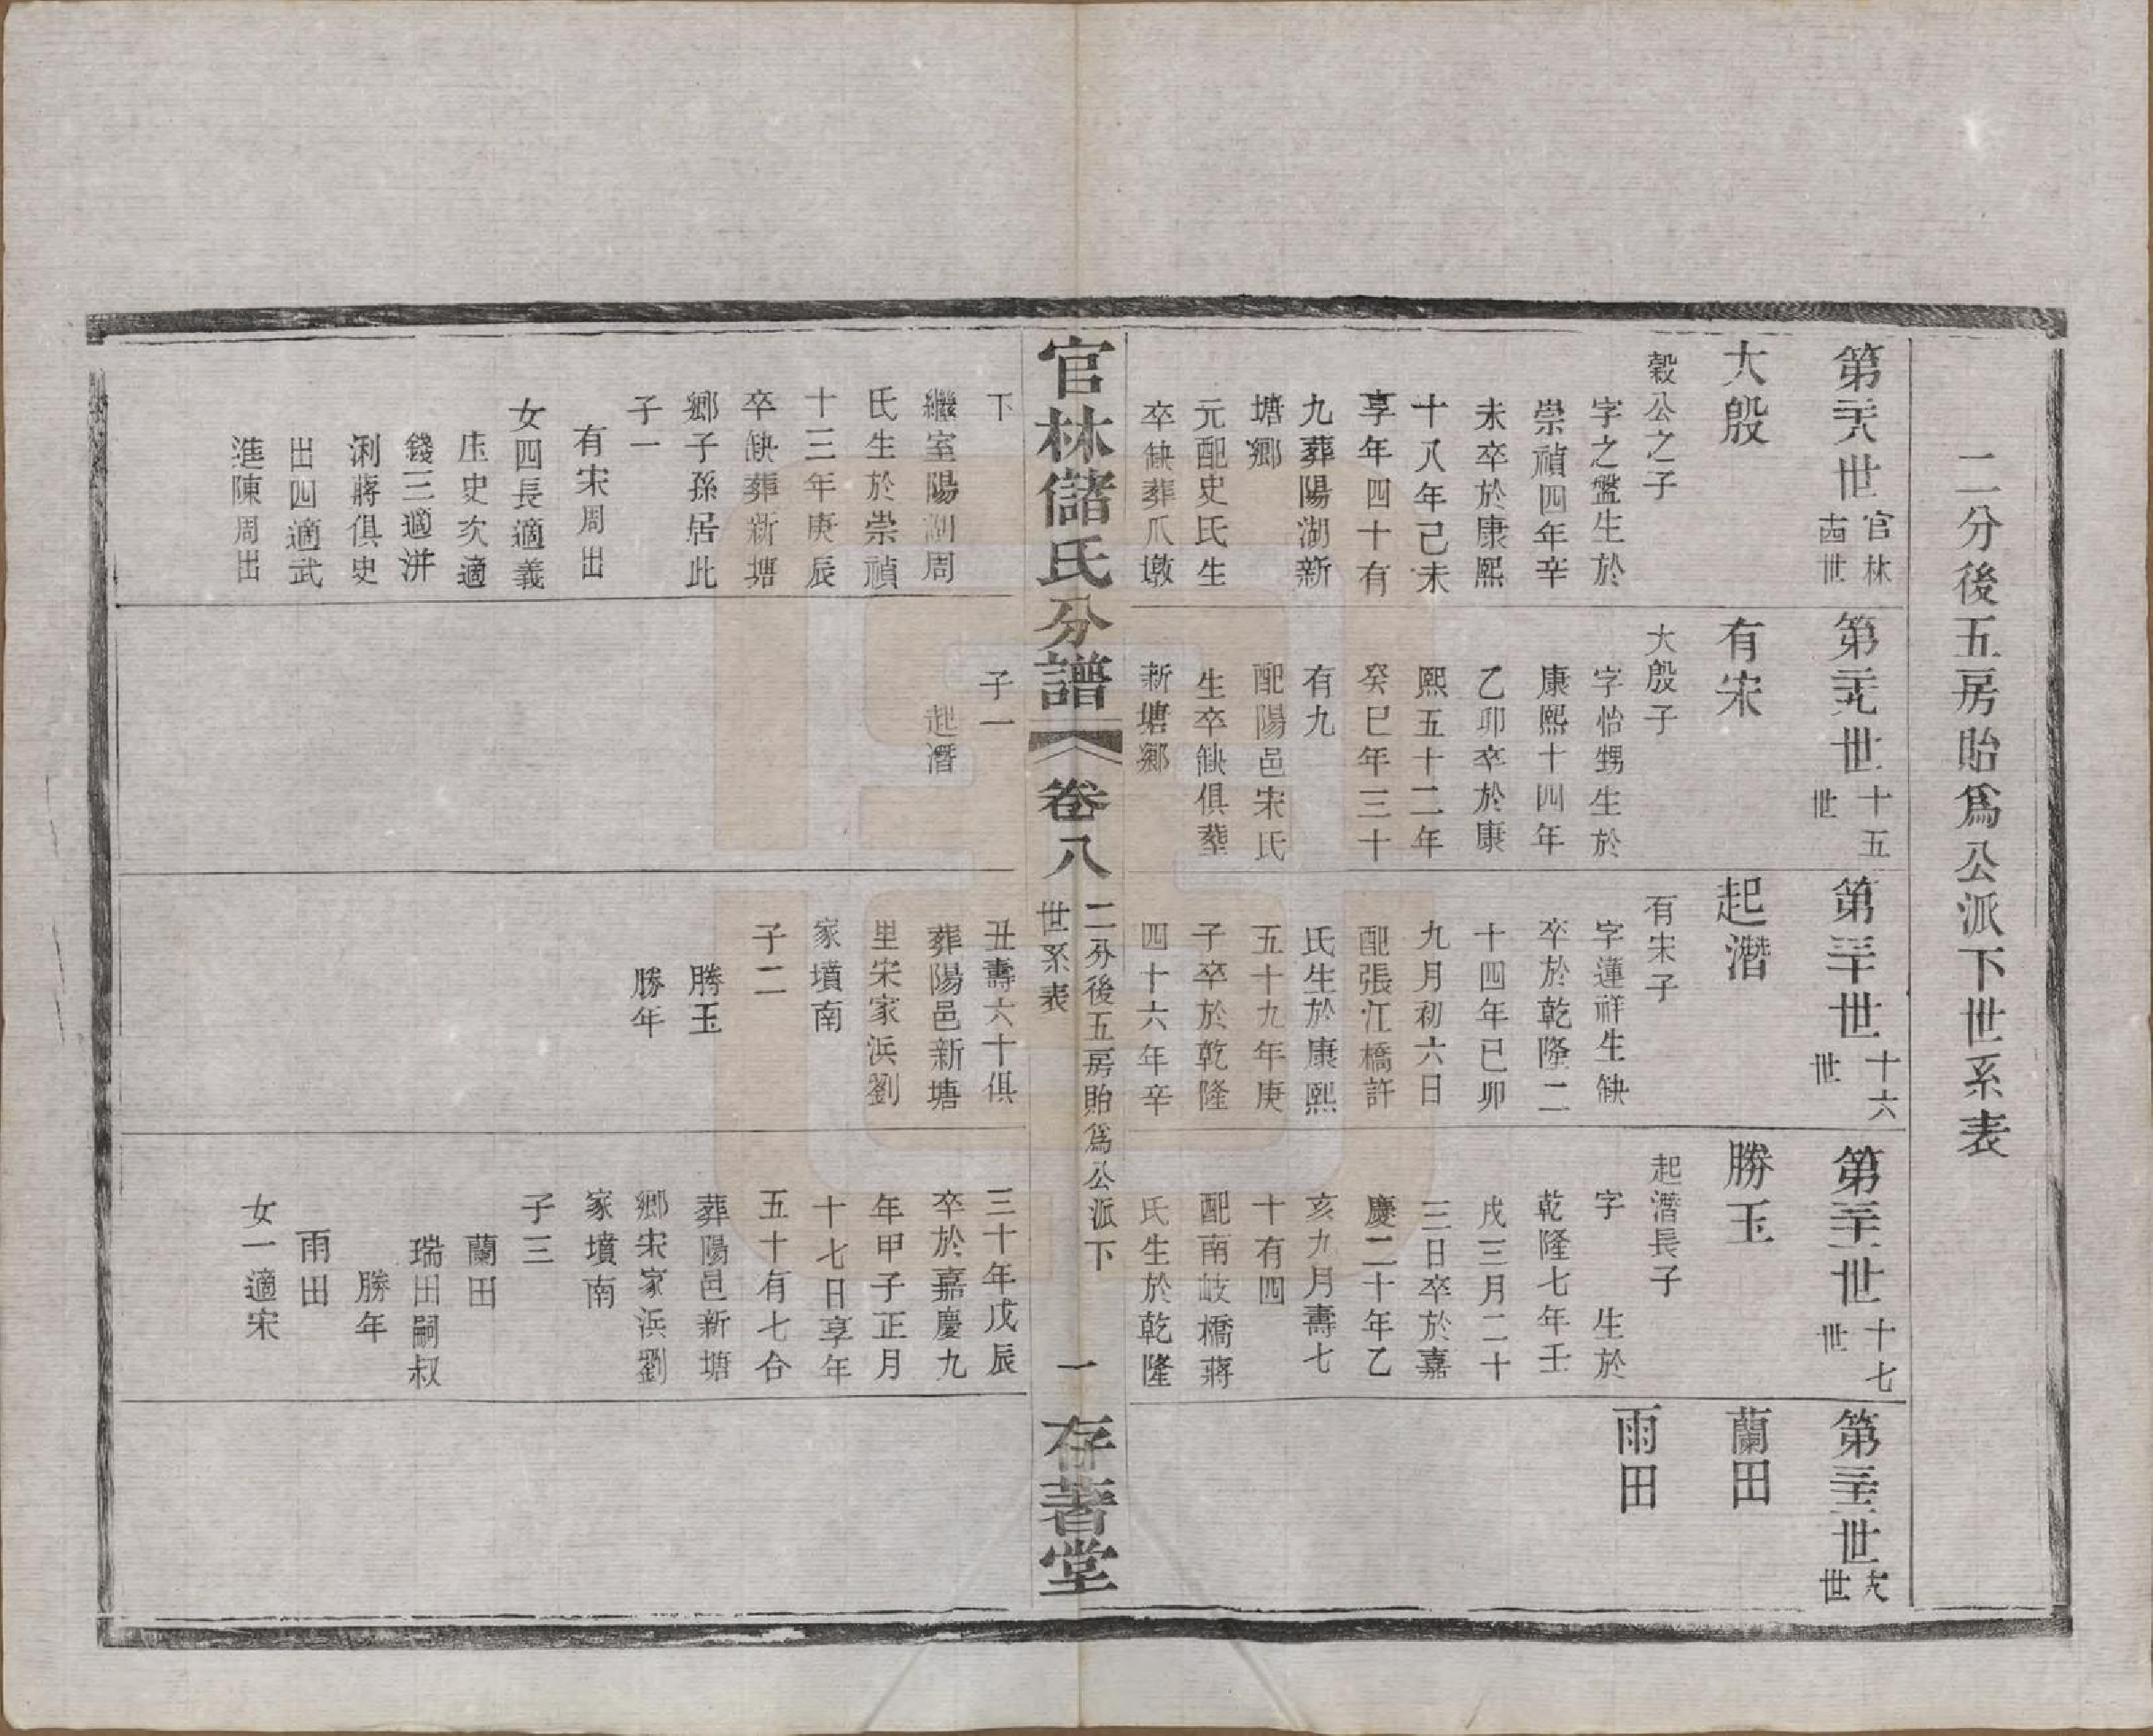 二分後五房貽爲公派下世系表
第二十八世
官林
十四世
大殷
穀公之子
字之盤生於
崇禎四年辛
未卒於康熙
十八年己未
享年四十有
九葬陽湖新
塘鄉
元配史氏生
卒缺葬爪墩
下
繼室陽湖周
氏生於崇禎
十三年庚辰
卒缺葬新塘
鄉子孫居此
子一
有宋周出
女四長適義
庄史次適
錢三適洴
浰蔣俱史
出四適武
進陳周出
第二十九世
十五
世
有宋
大殷子
字怡甥生於
康熙十四年
乙卯卒於康
熙五十二年
癸巳年三十
有九
配陽邑宋氏
生卒缺俱葬
新塘鄉
子一
起潛
第三十世
十六
世
起潛
有宋子
字蓮祥生缺
卒於乾隆二
十四年己卯
九月初六日
配張江橋許
氏生於康熙
五十九年庚
子卒於乾隆
四十六年辛
丑壽六十俱
葬陽邑新塘
里宋家浜劉
家墳南
子二
勝玉
勝年
第三十一世
十七
世
勝玉
起潛長子
字　生於
乾隆七年壬
戌三月二十
三日卒於嘉
慶二十年乙
亥九月壽七
十有四
配南岐橋蔣
氏生於乾隆
三十年戊辰
卒於嘉慶九
年甲子正月
十七日享年
五十有七合
葬陽邑新塘
鄉宋家浜劉
家墳南
子三
蘭田
瑞田嗣叔
勝年
雨田
女一適宋
第三十二世
十八
世
蘭田
雨田
官林儲氏分譜
卷八
二分後五房貽爲公派下
世系表
一
存著堂